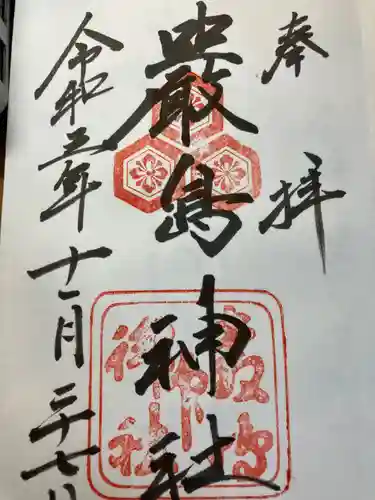 奉拝
嚴島神社
令和三年十一月三十七日